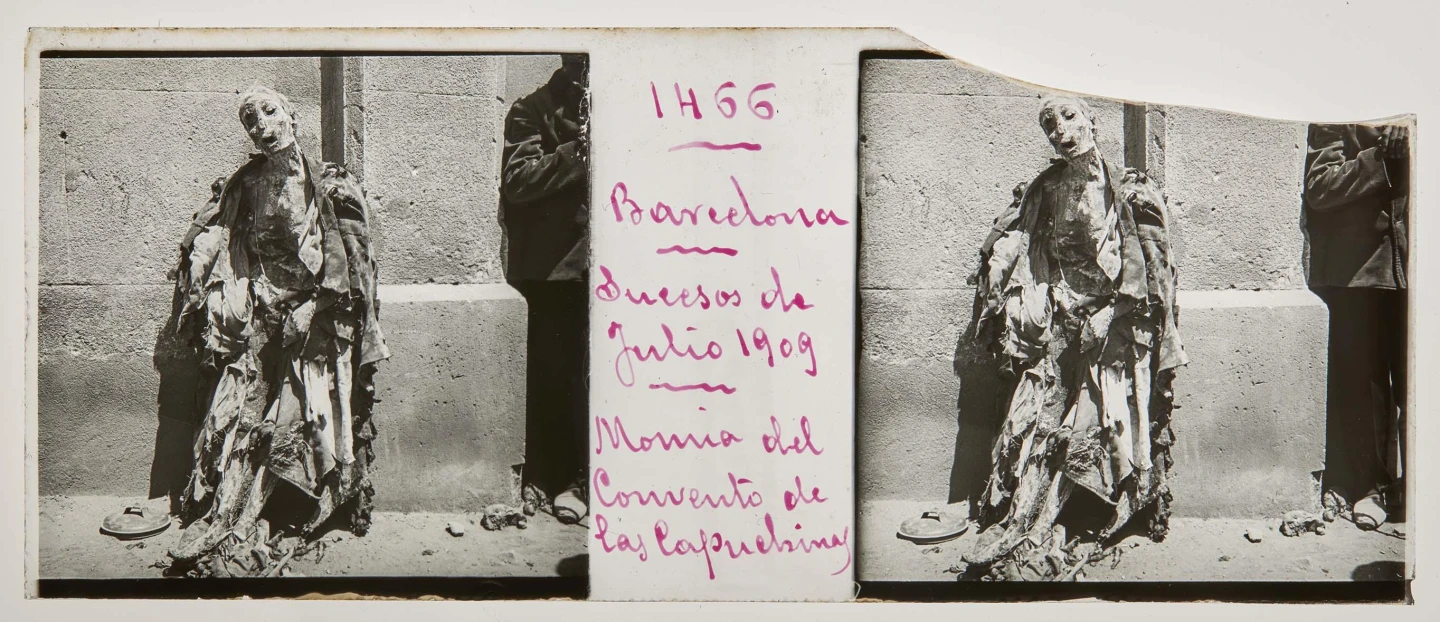 1466
Barcelona
Sucesos de
Julio 1909
Momia del
Convento de
las Capuchinas